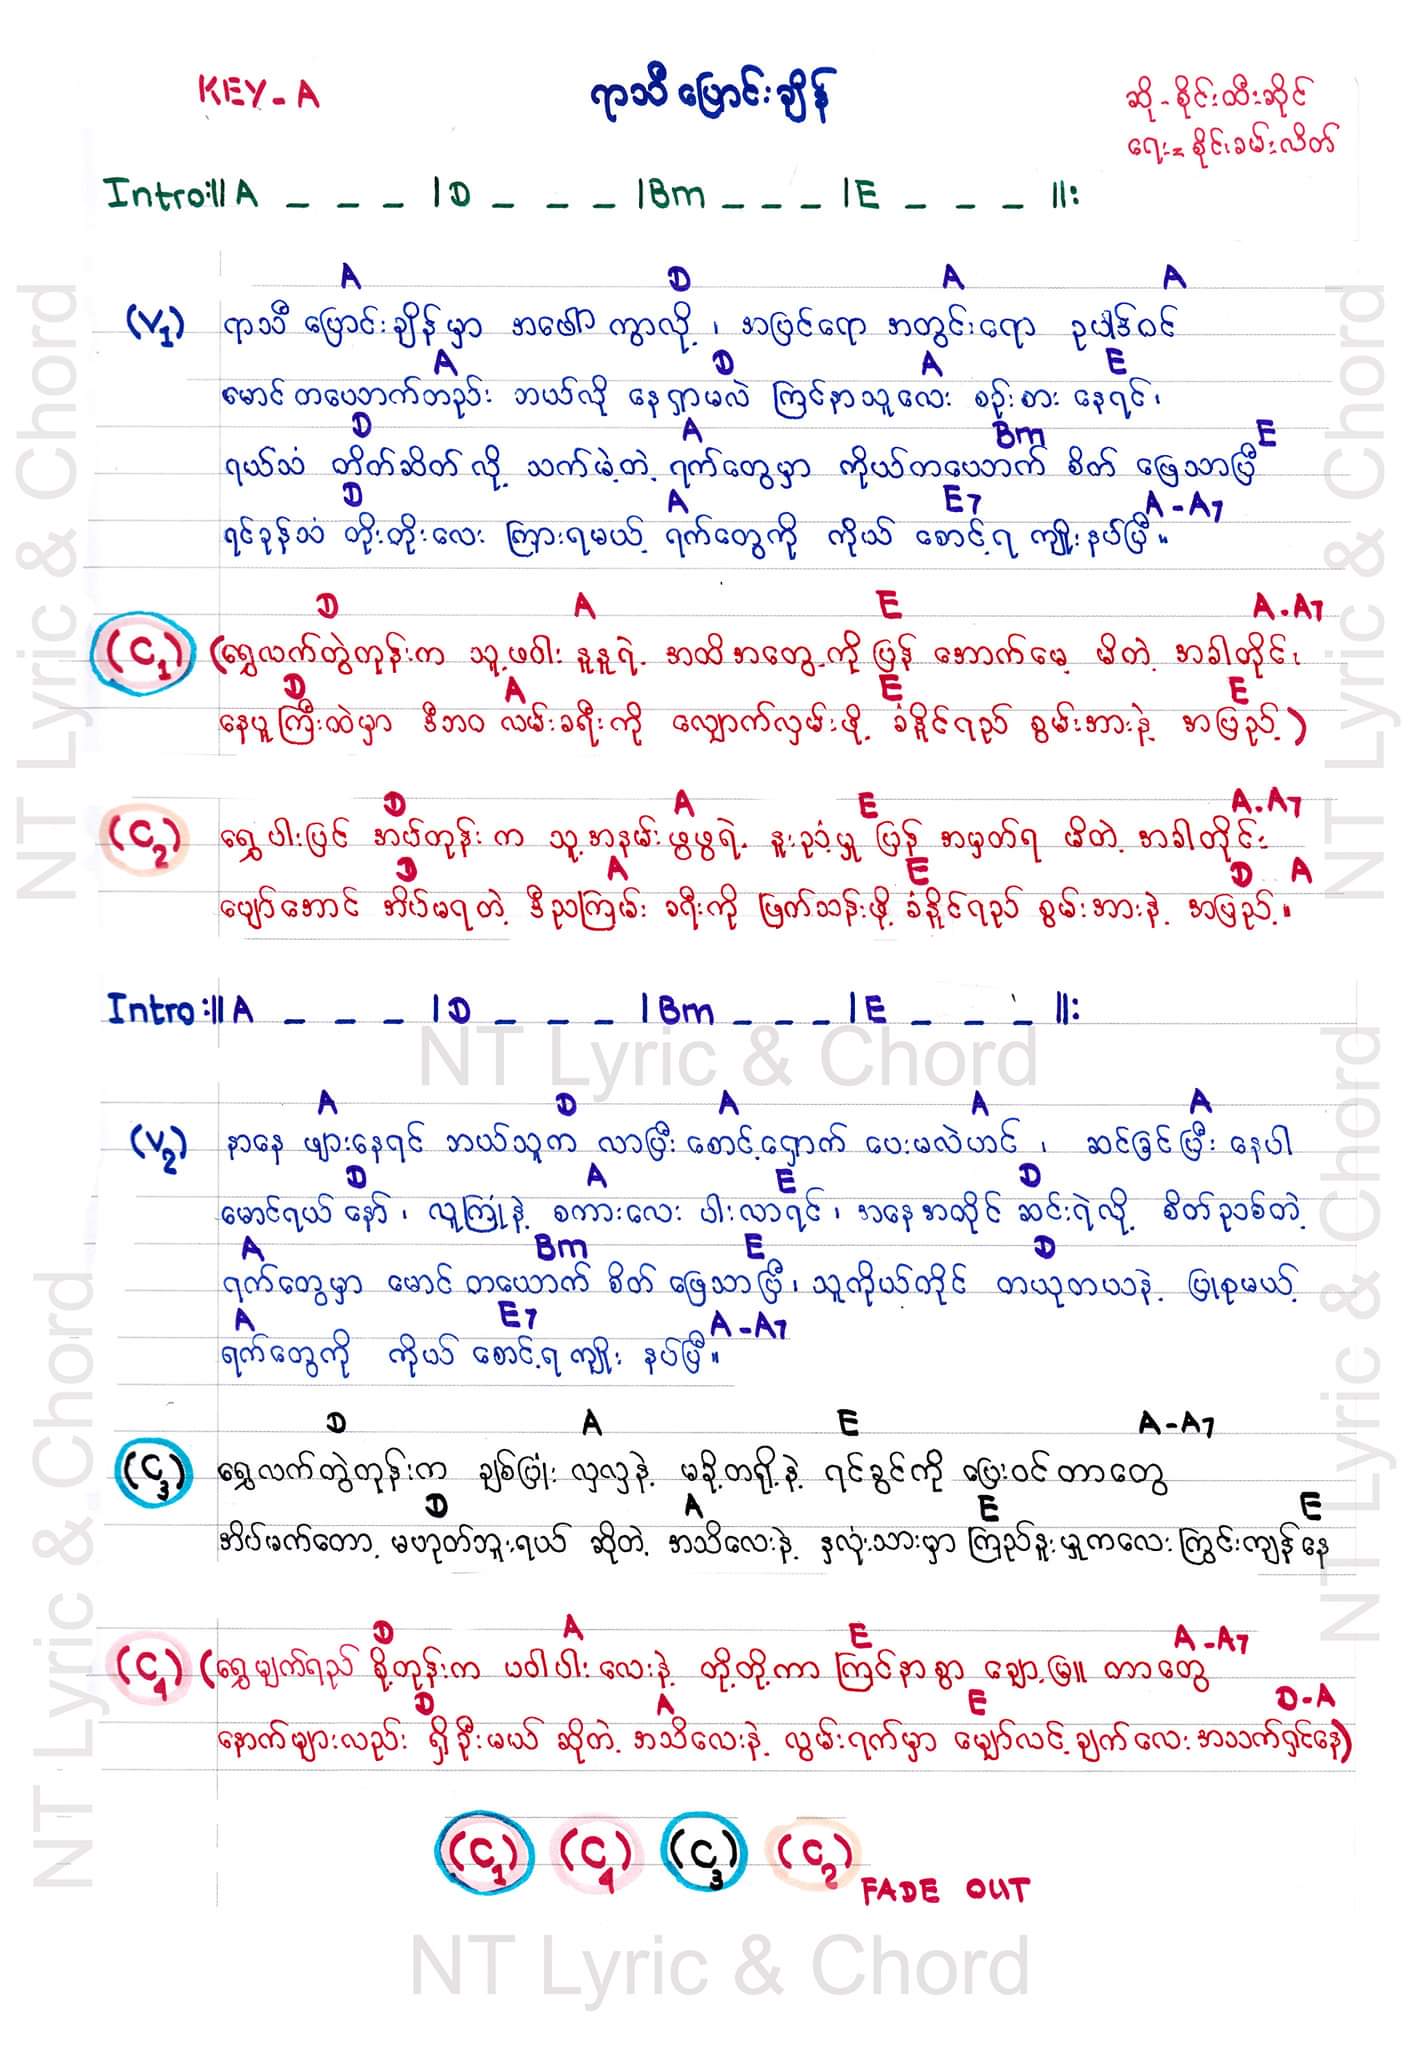 KEY - A
ရာသီပြောင်းချိန်
ဆို - စိုင်းထီးဆိုင်
ရေး = စိုင်းခမ်းလိတ်
Intro:|| A _ _ _ | D _ _ _ | Bm _ _ _ | E _ _ _ ||:
A D A A
(V1) ရာသီ ပြောင်းချိန်မှာ အဖော် ကွာလို့ ၊ အပြင်ရော အတွင်းရော ဥပါဒ်ဝင်
A D A E
မောင်တယောက်တည်း ဘယ်လို နေရှာမလဲ ကြင်နာသူလေး စဉ်းစား နေရင်၊
D A Bm E
ရယ်သံ တိတ်ဆိတ်လို့ သက်မဲ့တဲ့ ရက်တွေမှာ ကိုယ်တယောက် စိတ် ဖြေသာပြီ
D A E7 A - A7
ရင်ခုန်သံ တိုးတိုးလေး ကြားရမယ့် ရက်တွေကို ကိုယ် စောင့်ရ ကျိုးနပ်ပြီ။
D A E A - A7
(C1) (ရွှေလက်တွဲတုန်းက သူ့ဖဝါး နုနုရဲ့ အထိအတွေ့ကို ပြန် အောက်မေ့ မိတဲ့ အခါတိုင်း
D A E E
နေပူကြီးထဲမှာ ဒီဘဝ လမ်းခရီးကို လျှောက်လှမ်းဖို့ ခံနိုင်ရည် စွမ်းအားနဲ့ အပြည့်)
D A E A - A7
(C2) ရွှေပါးပြင် အပ်တုန်း က သူ့အနမ်း ဖွဖွရဲ့ နူးညံ့မှု ပြန် အမှတ်ရ မိတဲ့ အခါတိုင်း
D A E D A
ပျော်အောင် အိပ်မရတဲ့ ဒီညကြမ်း ခရီးကို ဖြတ်သန်းဖို့ ခံနိုင်ရည် စွမ်းအားနဲ့ အပြည့်။
Intro:|| A _ _ _ | D _ _ _ | Bm _ _ _ | E _ _ _ ||:
NT Lyric & Chord
A D A A A
(V2) နာနေ ဖျားနေရင် ဘယ်သူက လာပြီး စောင့်ရှောက် ပေးမလဲဟင် ၊ ဆင်ခြင်ပြီး နေပါ
D A E D
မောင်ရယ် နော် ၊ လူကြုံနဲ့ စကားလေး ပါးလာရင် ၊ အနေအထိုင် ဆင်းရဲလို့ စိတ်ညစ်တဲ့
A Bm E D
ရက်တွေမှာ မောင် တယောက် စိတ် ဖြေသာပြီ ၊ သူကိုယ်တိုင် တယုတယနဲ့ ပြုစုမယ့်
A E7 A - A7
ရက်တွေကို ကိုယ် စောင့်ရကျိုး နပ်ပြီ။
D A E A - A7
(C3) ရွှေလက်တွဲတုန်းက ချစ်ပြုံး လှလှနဲ့ မခို့တရို့နဲ့ ရင်ခွင်ကို ပြေးဝင်တာတွေ
D A E E
အိပ်မက်တော့ မဟုတ်ဘူးရယ် ဆိုတဲ့ အသိလေးနဲ့ နှလုံးသားမှာ ကြည်နူးမှုကလေး ကြွင်းကျန်နေ
D A E A - A7
(C4) (ရွှေမျက်ရည် စို့တုန်းက ဖဝါပါးလေးနဲ့ တို့တို့ကာ ကြင်နာစွာ ချော့မြှူ တာတွေ
D A E D - A
နောက်များလည်း ရှိဦးမယ် ဆိုတဲ့ အသိလေးနဲ့ လွမ်းရက်မှာ မျှော်လင့်ချက်လေး အသက်ရှင်နေ)
(C1) (C4) (C3) (C2)
FADE OUT
NT Lyric & Chord
NT Lyric & Chord
NT Lyric & Chord
NT Lyric & Chord
NT Lyric & Chord